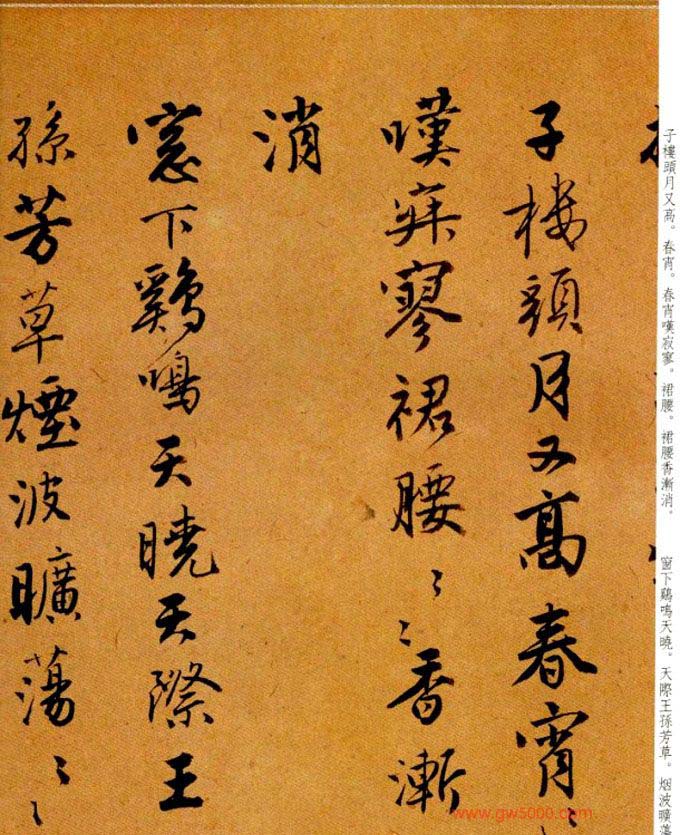 子樓頭月又高春宵〻
嘆寂寥裙腰〻〻香漸
消
窓下鷄鳴天曉天際王
孫芳草煙波曠蕩〻〻
子樓頭月又高。春宵。春宵嘆寂寥。裙腰。裙腰香漸消。
窗下鷄鳴天曉。天際王孫芳草。烟波曠蕩
www.gw5000.com